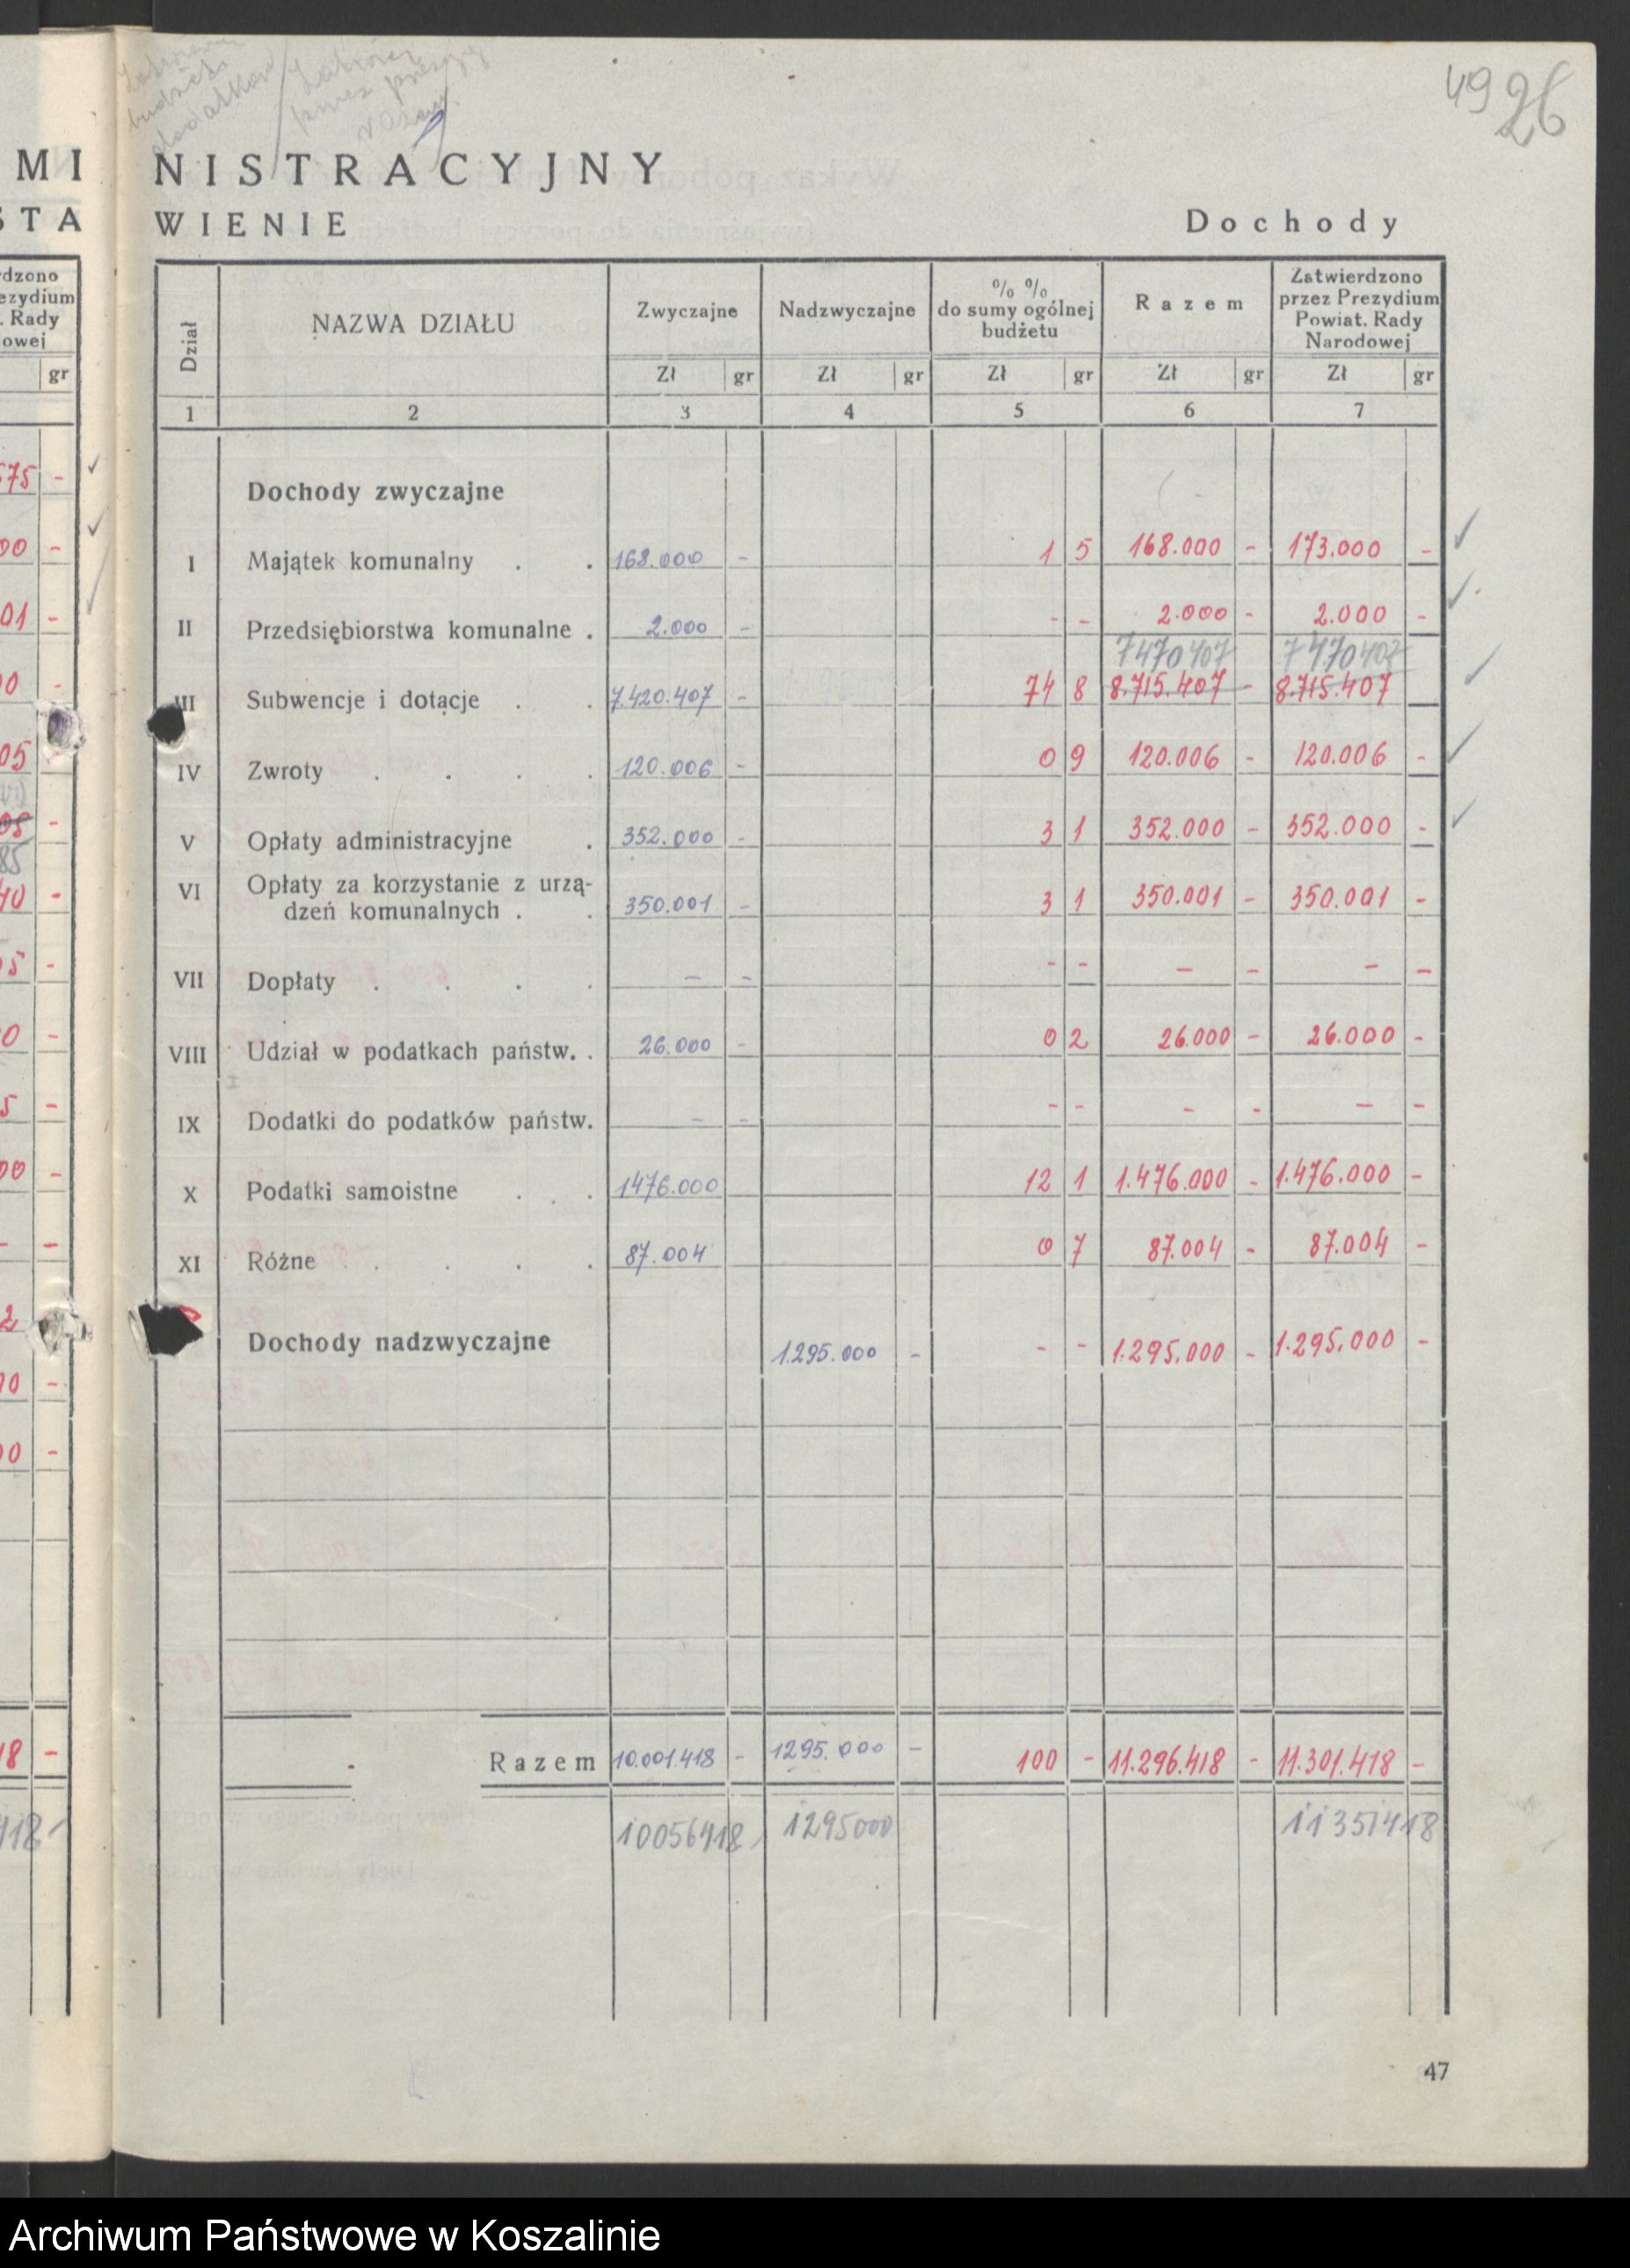 49 26
MI NISTRACYJNY
STA WIENIE Dochody
dzono
ezydium
. Rady
owej
gr
Dział | NAZWA DZIAŁU | Zwyczajne | Nadzwyczajne | % % do sumy ogólnej budżetu | Razem | Zatwierdzono przez Prezydium Powiat. Rady Narodowej
Zł gr | Zł gr | Zł gr | Zł gr | Zł gr
1 | 2 | 3 | 4 | 5 | 6 | 7
Dochody zwyczajne
I | Majątek komunalny . . | 168.000 - | | 1 5 | 168.000 - | 173.000 -
II | Przedsiębiorstwa komunalne . | 2.000 - | | - - | 2.000 - | 2.000 -
7470407 | 7470407
III | Subwencje i dotacje . . | 7.420.407 - | | 74 8 | 8.715.407 - | 8.715.407
IV | Zwroty . . . . | 120.006 - | | 0 9 | 120.006 - | 120.006 -
V | Opłaty administracyjne . | 352.000 - | | 3 1 | 352.000 - | 352.000 -
VI | Opłaty za korzystanie z urzą-
dzeń komunalnych . . | 350.001 - | | 3 1 | 350.001 - | 350.001 -
VII | Dopłaty . . . . | - - | | - - | - - | - -
VIII | Udział w podatkach państw. . | 26.000 - | | 0 2 | 26.000 - | 26.000 -
IX | Dodatki do podatków państw. | - - | | - - | - - | - -
X | Podatki samoistne . . . | 1476.000 | | 12 1 | 1.476.000 - | 1.476.000 -
XI | Różne . . . . | 87.004 | | 0 7 | 87.004 - | 87.004 -
Dochody nadzwyczajne | | 1.295.000 - | - - | 1.295.000 - | 1.295.000 -
Razem | 10.001.418 - | 1295.000 - | 100 - | 11.296.418 - | 11.301.418 -
10056418 | 1295000 | 11351418
47
Archiwum Państwowe w Koszalinie